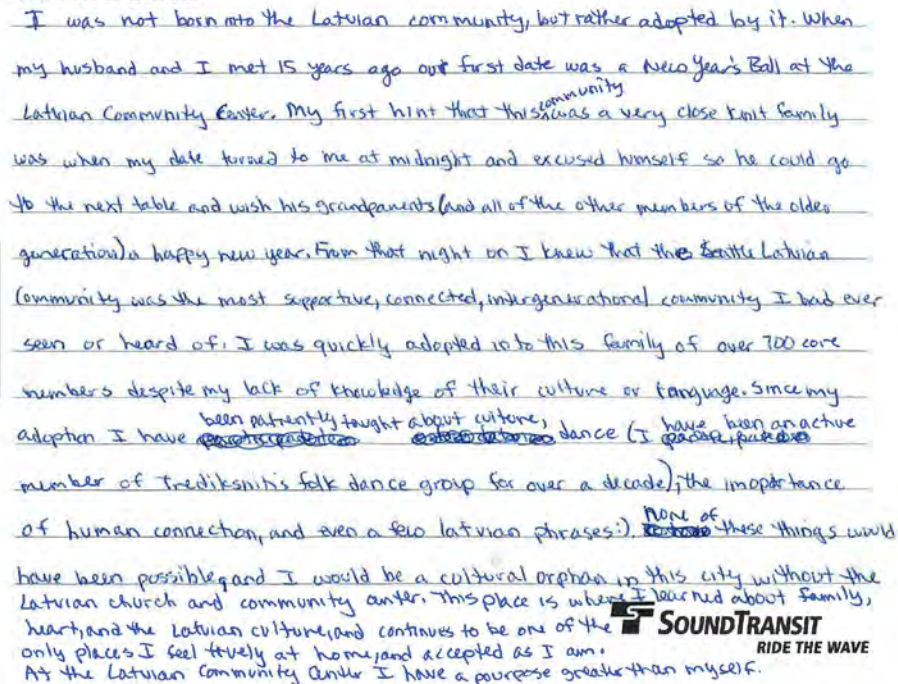 I was not born into the Latvian community, but rather adopted by it. When
my husband and I met 15 years ago our first date was a New Year's Ball at the
Latvian Community Center. My first hint that this community was a very close knit family
was when my date turned to me at midnight and excused himself so he could go
to the next table and wish his grandparents (and all of the other members of the older
generation) a happy new year. From that night on I knew that the Seattle Latvian
Community was the most supportive, connected, intergenerational community I had ever
seen or heard of. I was quickly adopted into this family of over 700 core
members despite my lack of knowledge of their culture or language. Since my
adoption I have been patiently taught about culture, dance (I have been an active
member of Trediksnitis folk dance group for over a decade), the imoportance
of human connection, and even a few latvian phrases:). None of these things would
have been possible, and I would be a cultural orphan in this city without the
Latvian church and community center. This place is where I learned about family,
heart, and the Latvian culture, and continues to be one of the
only places I feel truely at home, and accepted as I am.
At the Latvian Community Center I have a pourpose greater than myself.
SOUNDTRANSIT
RIDE THE WAVE